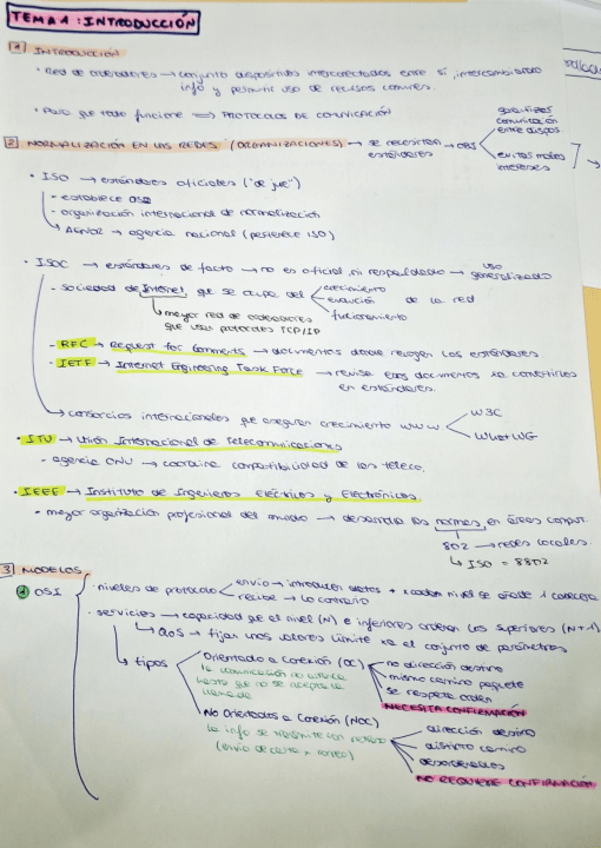 TEMA 1: INTRODUCCIÓN
1 INTRODUCCIÓN
· Red de ordenadores → conjunto dispositivos interconectados entre sí, intercambiando
info y permitir uso de recursos comunes.
· Para que todo funcione ⇒ PROTOCOLOS DE COMUNICACIÓN
2 NORMALIZACIÓN EN LAS REDES (ORGANIZACIONES) → se necesitan estándares → OBJ
garantizar comunicación entre dispos.
evitar malos intereses
· ISO → estándares oficiales ("de jure")
- establece OSI
- organización internacional de normalización
↳ AENOR → agencia nacional (pertenece ISO)
· ISOC → estándares de facto → no es oficial, ni respaldado → uso generalizado
- sociedad de Internet, que se ocupa del crecimiento evolución funcionamiento de la red
↳ mayor red de ordenadores
que usan protocolos TCP/IP
- RFC → Request for Comments → documentos donde recogen los estándares
- IETF → Internet Engineering Task Force → revisa esos documentos xa convertirlos
en estándares.
↳ consorcios internacionales que aseguran crecimiento WWW
W3C
WhatWG
· ITU → Unión Internacional de Telecomunicaciones
- agencia ONU → coordina compatibilidad de las teleco.
· IEEE → Instituto de Ingenieros Eléctricos y Electrónicos
- mayor organización profesional del mundo → desarrolla las normas en áreas comput.
802 → redes locales.
↳ ISO = 8802
3 MODELOS
1 OSI
· niveles de protocolo
envío → introducen datos + x cada nivel se añade 1 cabecera
recibe → lo contrario
· servicios → capacidad que el nivel (N) e inferiores ordenan los superiores (N+1)
↳ QoS → fijan unos valores límite xa el conjunto de parámetros
↳ tipos
Orientado a Conexión (OC)
la comunicación no
hasta que no se acepta la
llamada
no dirección destino
mismo camino paquete
se respeta orden
NECESITA CONFIRMACIÓN
No Orientados a Conexión (NOC)
la info se transmite con
(envío de carta x correo)
dirección destino
distinto camino
desordenados
NO REQUIERE CONFIRMACIÓN